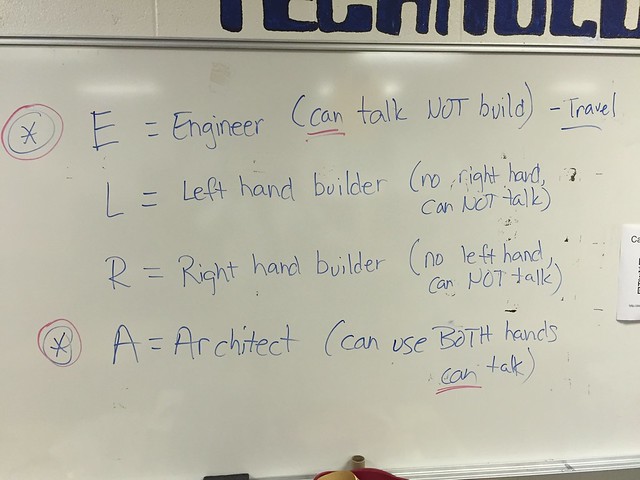 TECHNOLO
* E = Engineer (can talk NOT build) - Travel
L = Left hand builder (no right hand,
can NOT talk)
R = Right hand builder (no left hand,
can NOT talk)
* A = Architect (can use BOTH hands
can talk)